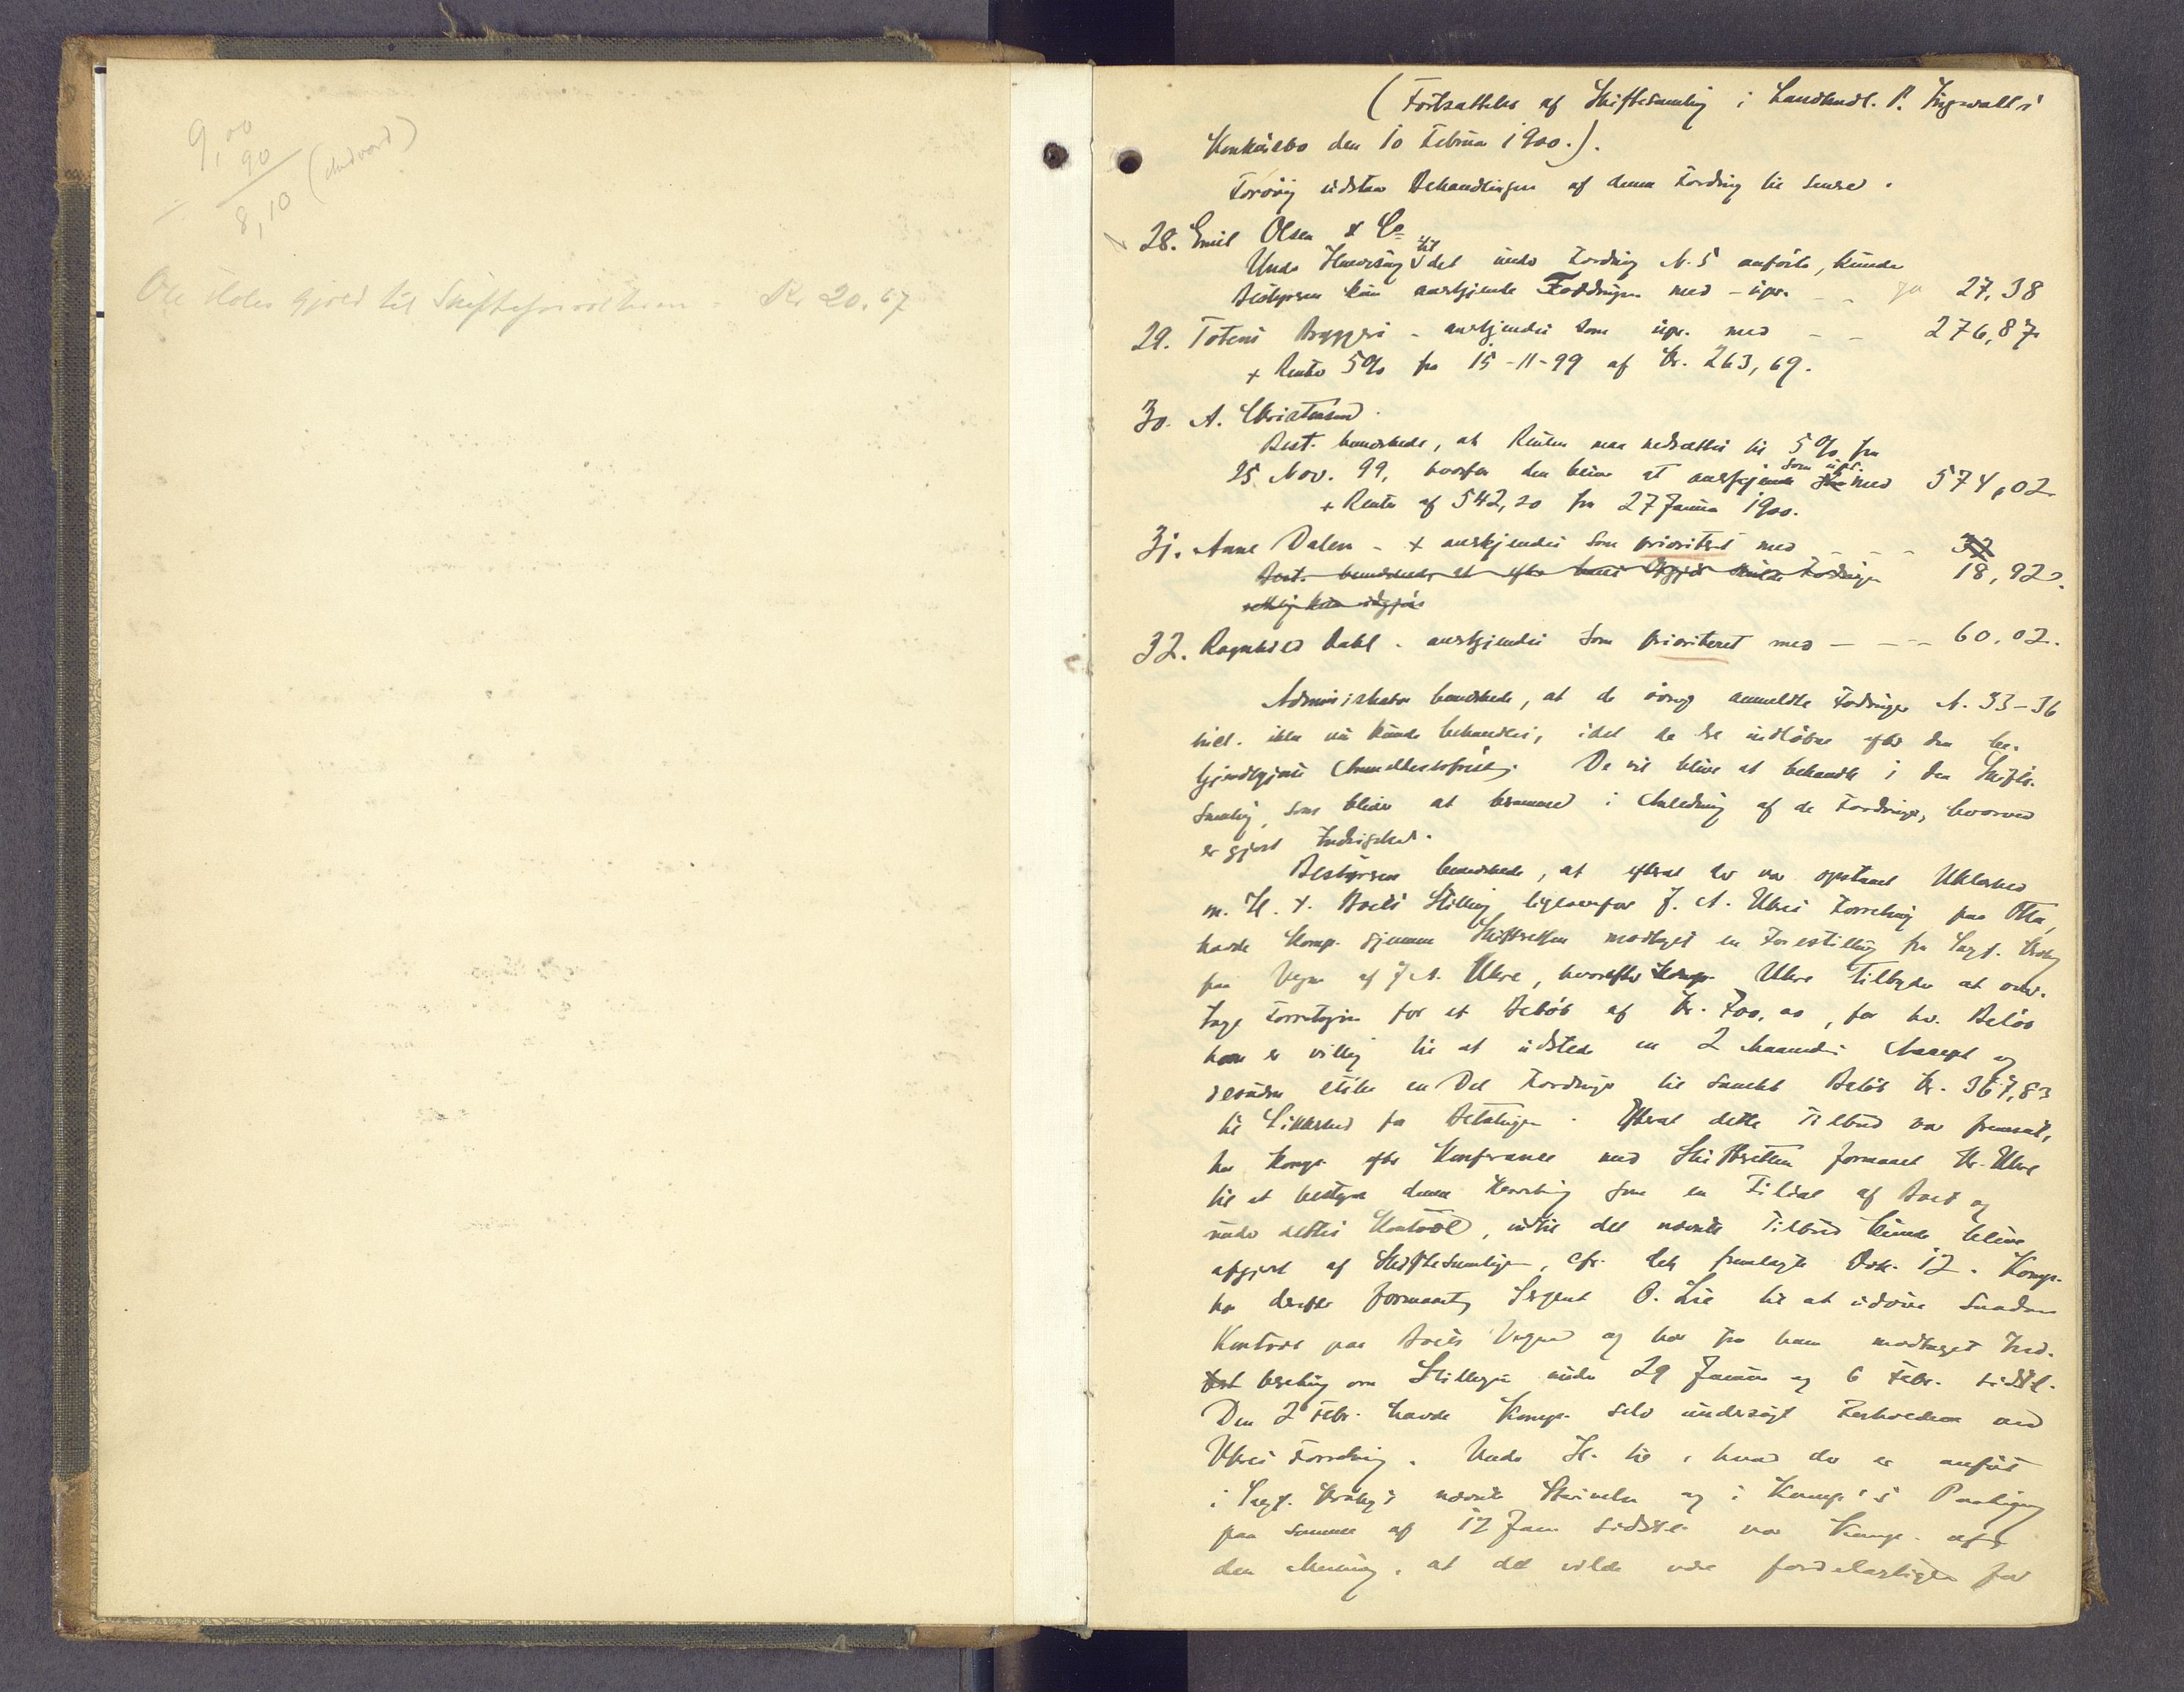 9,00
90
8,10
Ole gjæld til Skifteforvalteren - Kr 20.67
(Fortsættelse af Skiftesamling i Landhndl. P. Ingwalls
Konkursbo den 10 Februar 1900.).
Forøvrig udstaar Behandlingen af denne Fordring til senere.
28. Emil Olsen & Co
Under Henvisning til det under Fordring N. 5 anførte, kunde
Bestyreren kun anerkjende Fordringen med - upr. - - 27,38
29. Totens Bryggeri - anerkjendes som upr. med - - 276,87
+ Renter 5% fra 15-11-99 af Kr. 263,69.
30. A. Christensen.
Best. bemærkede, at Renten maa nedsættes til 5% fra
25 Nov. 99, hvorfor den bliver at anerkjende som upr. med 574,02.
+ Renter af 542,20 fra 27 Januar 1900.
31. Anne Dalen - + anerkjendes som prioritert med - - - 37
Best. bemærkede at efter Fordringen 18,92.
32. Ragnhild Dahl - anerkjendes som prioriteret med - - - 60.02.
Administrator bemærkede, at de øvrige anmeldte Fordringer N. 33-36
incl. ikke nu kunde behandles, idet de er indløbne efter den be-
kjendtgjorte Anmeldelsesfrist. De vil blive at behandle i den Skifte-
samling, som bliver at beramme i Anledning af de Fordringer, hvorved
er gjort Indsigelse.
Bestyreren bemærkede, at efterat der var opstaaet Uklarhed
m. H. t. Boets Stilling ligeoverfor J. A. Ukres Forretning paa Otta,
havde Komp. gjennem Skifteretten modtaget en Forestilling fra Sagf.
paa Vegne af J. A. Ukre, hvorefter Ukre tilbyder at over-
tage Forretningen for et Beløb af Kr. 700,00, for hv. Beløb
han er villig til at udstede en 2 Maaneders Accept og
desuden stille en Del Fordringer til samlet Beløb Kr. 367,83
til Sikkerhed for Betalingen. Efterat dette Tilbud var fremsat,
har Komp. efter Konferance med Skifteretten formaaet Hr. Ukre
til at bestyre denne Forretning som en Filial af Boet og
under dettes Kontrol, indtil det nævnte Tilbud kunde blive
afgjort af Skiftesamlingen, cfr. det fremlagte Dok. 12. Komp.
har derefter formaaet Sergent O. Lie til at udøve saadan
Kontrol paa Boets Vegne og har fra ham modtaget Ind-
beretning om Stillingen under 29 Januar og 6 Febr. sidstl.
Den 2 Febr. havde Komp. selv undersøgt Forholdene ved
Ukres Forretning. Under H. til, hvad der er anført
i Sagf. nævnte Skrivelse og i Komp.'s Paategning
paa samme af 17 Jan. sidstl. var Komp. af
den Mening, at det vilde være fordelagtigere for